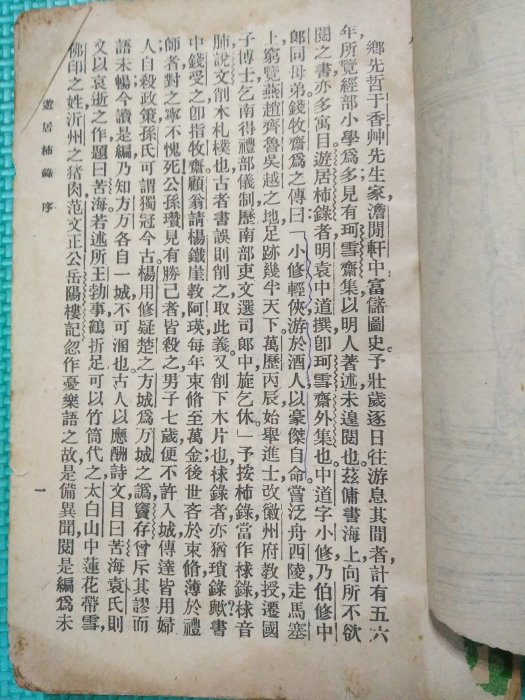 鄉先哲于香艸先生家澹閒軒中富儲圖史予壯歲逐日往游息其間者計有五六
年所覽經部小學爲多見有珂雪齋集以明人著述未遑閱也茲傭書海上向所不欲
閱之書亦多寓目遊居柹錄者明袁中道撰卽珂雪齋外集也中道字小修乃伯修中
郞同母弟錢牧齋爲之傳曰「小修輕俠游於酒人以豪傑自命嘗泛舟西陵走馬塞
上窮覽燕趙齊魯吳越之地足跡幾半天下萬歷丙辰始舉進士改徽州府敎授遷國
子博士乞南得禮部儀制歷南部吏文選司郞中旋乞休」予按柹錄當作柿錄柿音
肺說文削木札樸也古者書誤則削之取此義又削下木片也柿錄者亦猶瑣錄歟書
中錢受之卽指牧齋顧翁請楊鐵崖敎阿瑛每年束脩至萬金後世吝於束脩薄於禮
師者對之寧不愧死公孫瓚見有勝己者皆殺之男子七歲便不許入城傳達皆用婦
人自殺政策孫氏可謂獨冠今古楊用修疑楚之方城爲万城之譌竇存曾斥其謬而
語未暢今讀是編乃知方万各自一城不可溷也古人以應酬詩文目曰苦海袁氏則
文以哀逝之作題曰苦海若述所王勃事鶴折足可以竹筒代之太白山中蓮花帶雪
佛印之姓沂州之猪肉范文正公岳陽樓記忽作憂樂語之故是備異聞閱是編爲未
遊居柿錄 序
一